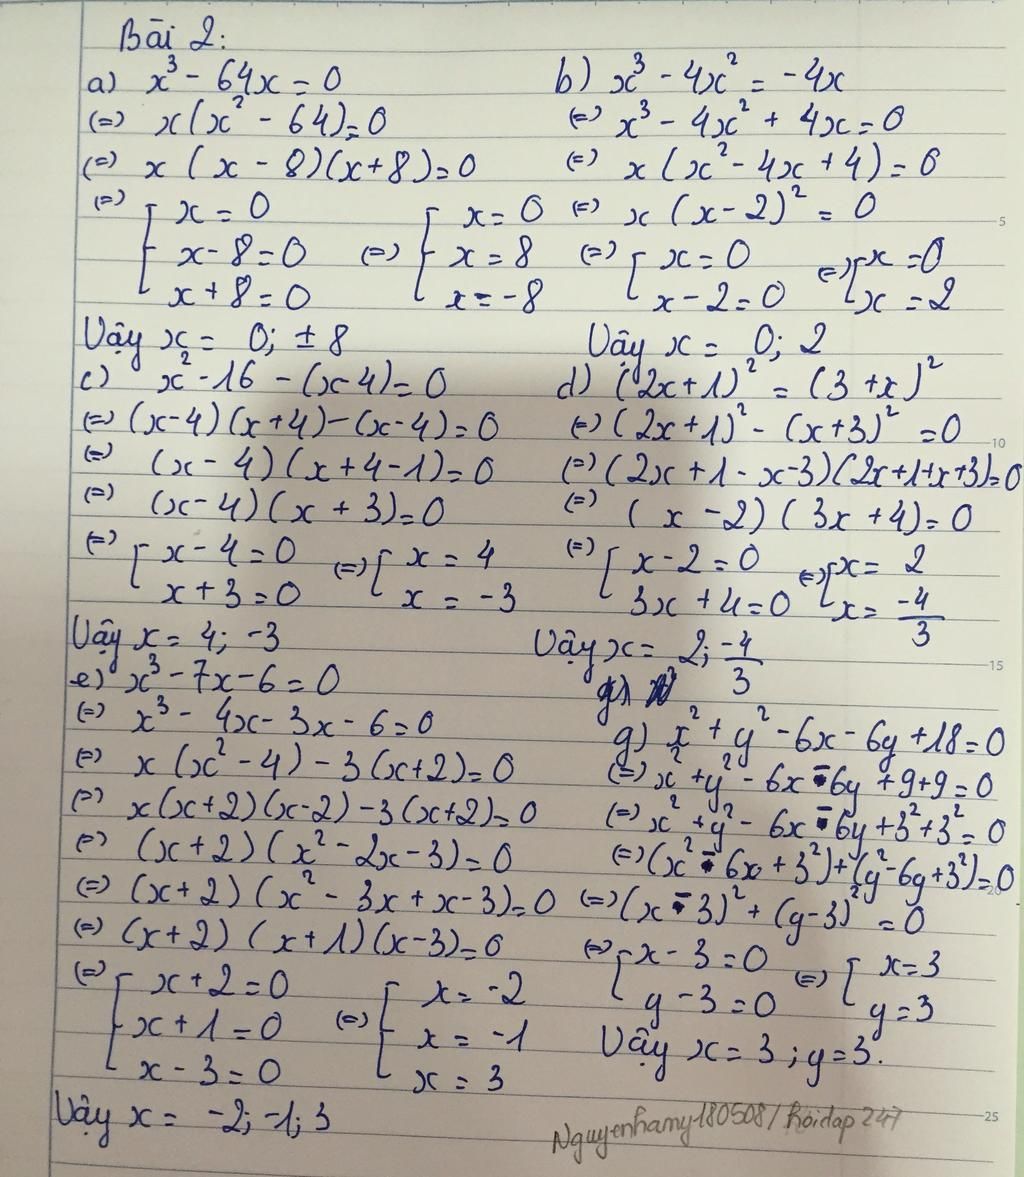 Bài 2:
a) x³ - 64x = 0
(=) x(x² - 64) = 0
(=) x (x - 8)(x+8) = 0
(=) [ x = 0
x - 8 = 0
x + 8 = 0
(=) [ x = 0
x = 8
x = -8
Vậy x = 0; ± 8
b) x³ - 4x² = -4x
(=) x³ - 4x² + 4x = 0
(=) x (x² - 4x + 4) = 0
(=) x (x - 2)² = 0
(=) [ x = 0
x - 2 = 0
(=) [ x = 0
x = 2
Vậy x = 0; 2
c) x² - 16 - (x - 4) = 0
(=) (x-4)(x+4) - (x-4) = 0
(=) (x - 4)(x + 4 - 1) = 0
(=) (x - 4)(x + 3) = 0
(=) [ x - 4 = 0
x + 3 = 0
(=) [ x = 4
x = -3
Vậy x = 4; -3
d) (2x+1)² = (3 + x)²
(=) (2x+1)² - (x+3)² = 0
(=) (2x + 1 - x - 3)(2x+1+x+3) = 0
(=) (x - 2)(3x + 4) = 0
(=) [ x - 2 = 0
3x + 4 = 0
(=) [ x = 2
x = -4/3
Vậy x = 2; -4/3
e) x³ - 7x - 6 = 0
(=) x³ - 4x - 3x - 6 = 0
(=) x (x² - 4) - 3(x+2) = 0
(=) x(x+2)(x-2) - 3(x+2) = 0
(=) (x+2)(x² - 2x - 3) = 0
(=) (x+2)(x² - 3x + x - 3) = 0
(=) (x+2)(x+1)(x-3) = 0
(=) [ x + 2 = 0
x + 1 = 0
x - 3 = 0
(=) [ x = -2
x = -1
x = 3
Vậy x = -2; -1; 3
g) x² + y² - 6x - 6y + 18 = 0
(=) x² + y² - 6x - 6y + 9 + 9 = 0
(=) x² + y² - 6x - 6y + 3² + 3² = 0
(=) (x² - 6x + 3²) + (y² - 6y + 3²) = 0
(=) (x - 3)² + (y - 3)² = 0
(=) [ x - 3 = 0
y - 3 = 0
(=) [ x = 3
y = 3
Vậy x = 3; y = 3.
Nguyenhamy180508/Hoidap 247
5
10
15
20
25